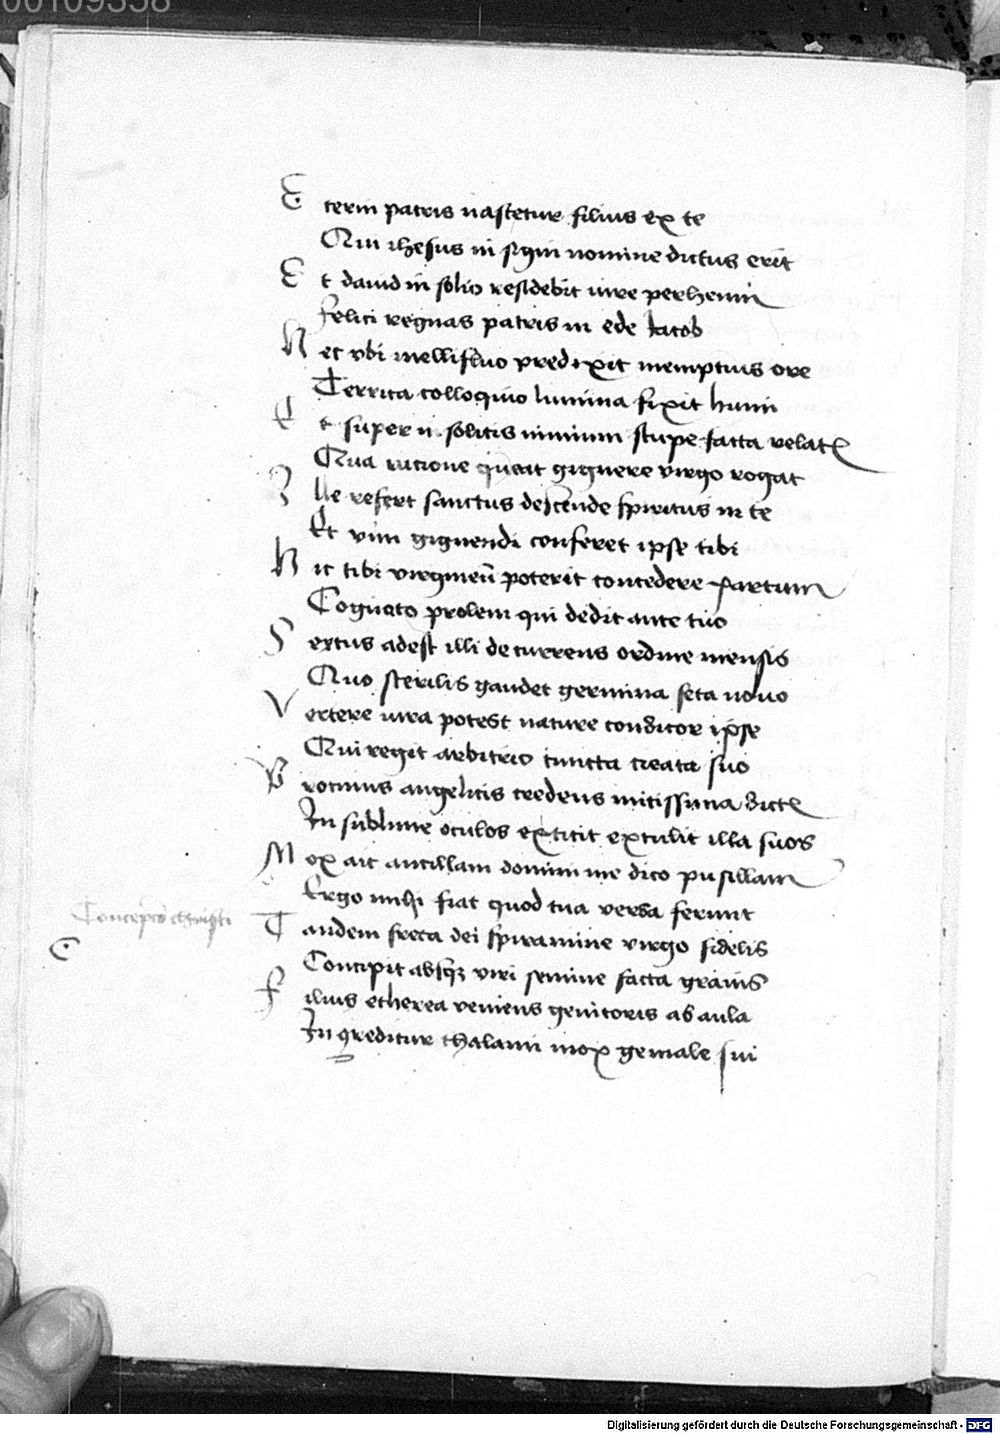 00109358
E terni patris nascetur filius ex te
Qui ihesus in sīgm nomine dictus erit
E t dauid in solio residebit iure perhenni
Felici regnas patris in ede Iacob
H ec vbi mellifluo predixit nuncius ore
Territa colloquio lumina fixit humi
E t super insolitis nimium stupefacta relatis
Qua racione queat gignere virgo rogat
I lle refert sanctus descende spiritus in te
Et vim gignendi conferet ipse tibi
H ic tibi virgineū poterit concedere partum
Cognato prolem qui dedit ante tuo
S extus adest illi decurrens ordine mensis
Quo sterilis gaudet germina feta nouo
V ertere iura potest nature conditor ipse
Qui regit arbitrio cuncta creata suo
P rotinus angelicis credens mitissima dictis
In sublime oculos extitit extulit illa suos
M ox ait ancillam domini me dico pusillam
Ergo mihi fiat quod tua verba ferunt
Concepcio christi
T andem freta dei spiramine virgo fidelis
Concipit absqz viri semine facta grauis
F ilius etherea veniens genitoris ab aula
Ingreditur thalami mox geniale sui
Digitalisierung gefördert durch die Deutsche Forschungsgemeinschaft - DFG